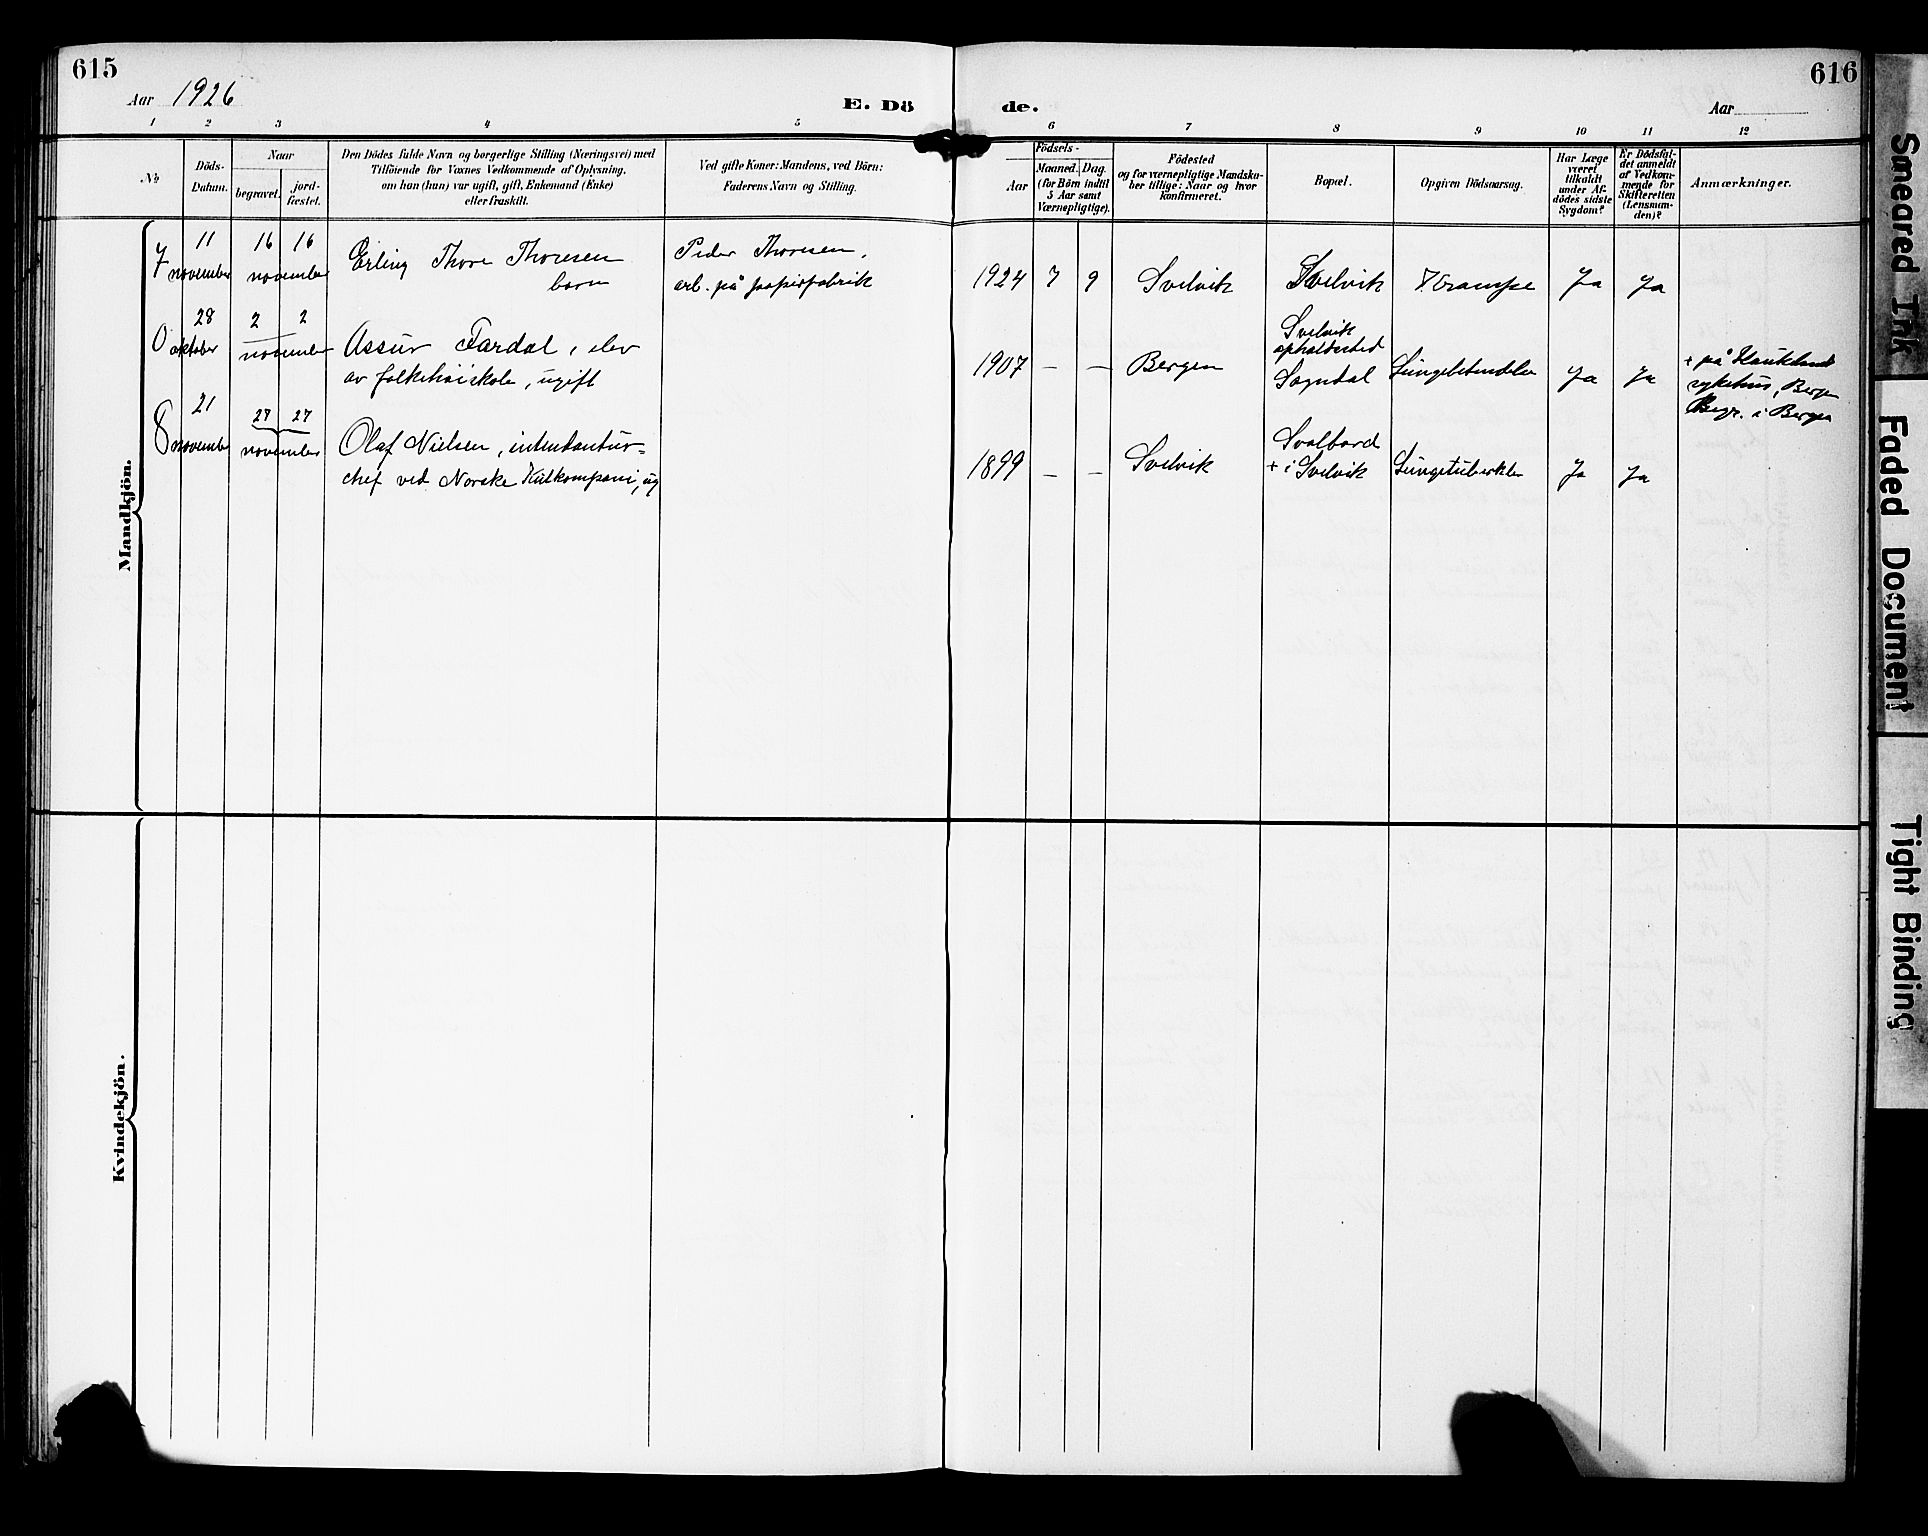 615
616
Aar 1926
E. Dö
de.
Aar
1 2 3 4 5 6 7 8 9 10 11 12
№
Döds-
Datum.
Naar
begravet.
jord-
fæstet.
Den Dödes fulde Navn og borgerlige Stilling (Næringsvei) med
Tilföiende for Voxnes Vedkommende af Oplysning,
om han (hun) var ugift, gift, Enkemand (Enke)
eller fraskilt.
Ved gifte Koner: Mandens, ved Börn:
Faderens Navn og Stilling.
Födsels-
Aar
Maaned.
Dag.
(for Börn indtil
5 Aar samt
Værnepligtige).
Födested
og for værnepligtige Mandska-
ber tillige: Naar og hvor
konfirmeret.
Bopæl.
Opgiven Dödsaarsag.
Har Læge
været
tilkaldt
under Af-
dödes sidste
Sygdom?
Er Dödsfal-
det anmeldt
af Vedkom-
mende for
Skifteretten
(Lensman-
den)?
Anmærkninger.
Mandkjön.
7
11
november
16 16
november
Erling Thore Thoresen
barn
Peder Thoresen,
arb. på papirfabrik
1924 7 9 Svelvik Svelvik Krampe Ja Ja
0
28
oktober
2 2
november
Assur Fardal, elev
av folkehöiskole, ugift
1907 — — Bergen
Svelvik
opholdssted
Sogndal
Lungebetendelse
Ja Ja
+ på Haukeland
sykehus, Bergen
Begr. i Bergen
8
21
november
27 27
november
Olaf Nielsen, intendantur-
chef ved Norske Kulkompani, ug
1899 — — Svelvik
Svalbard
+ i Svelvik
Lungetuberkler
Ja Ja
Kvindekjön.
Smeared Ink
Faded Document
Tight Binding